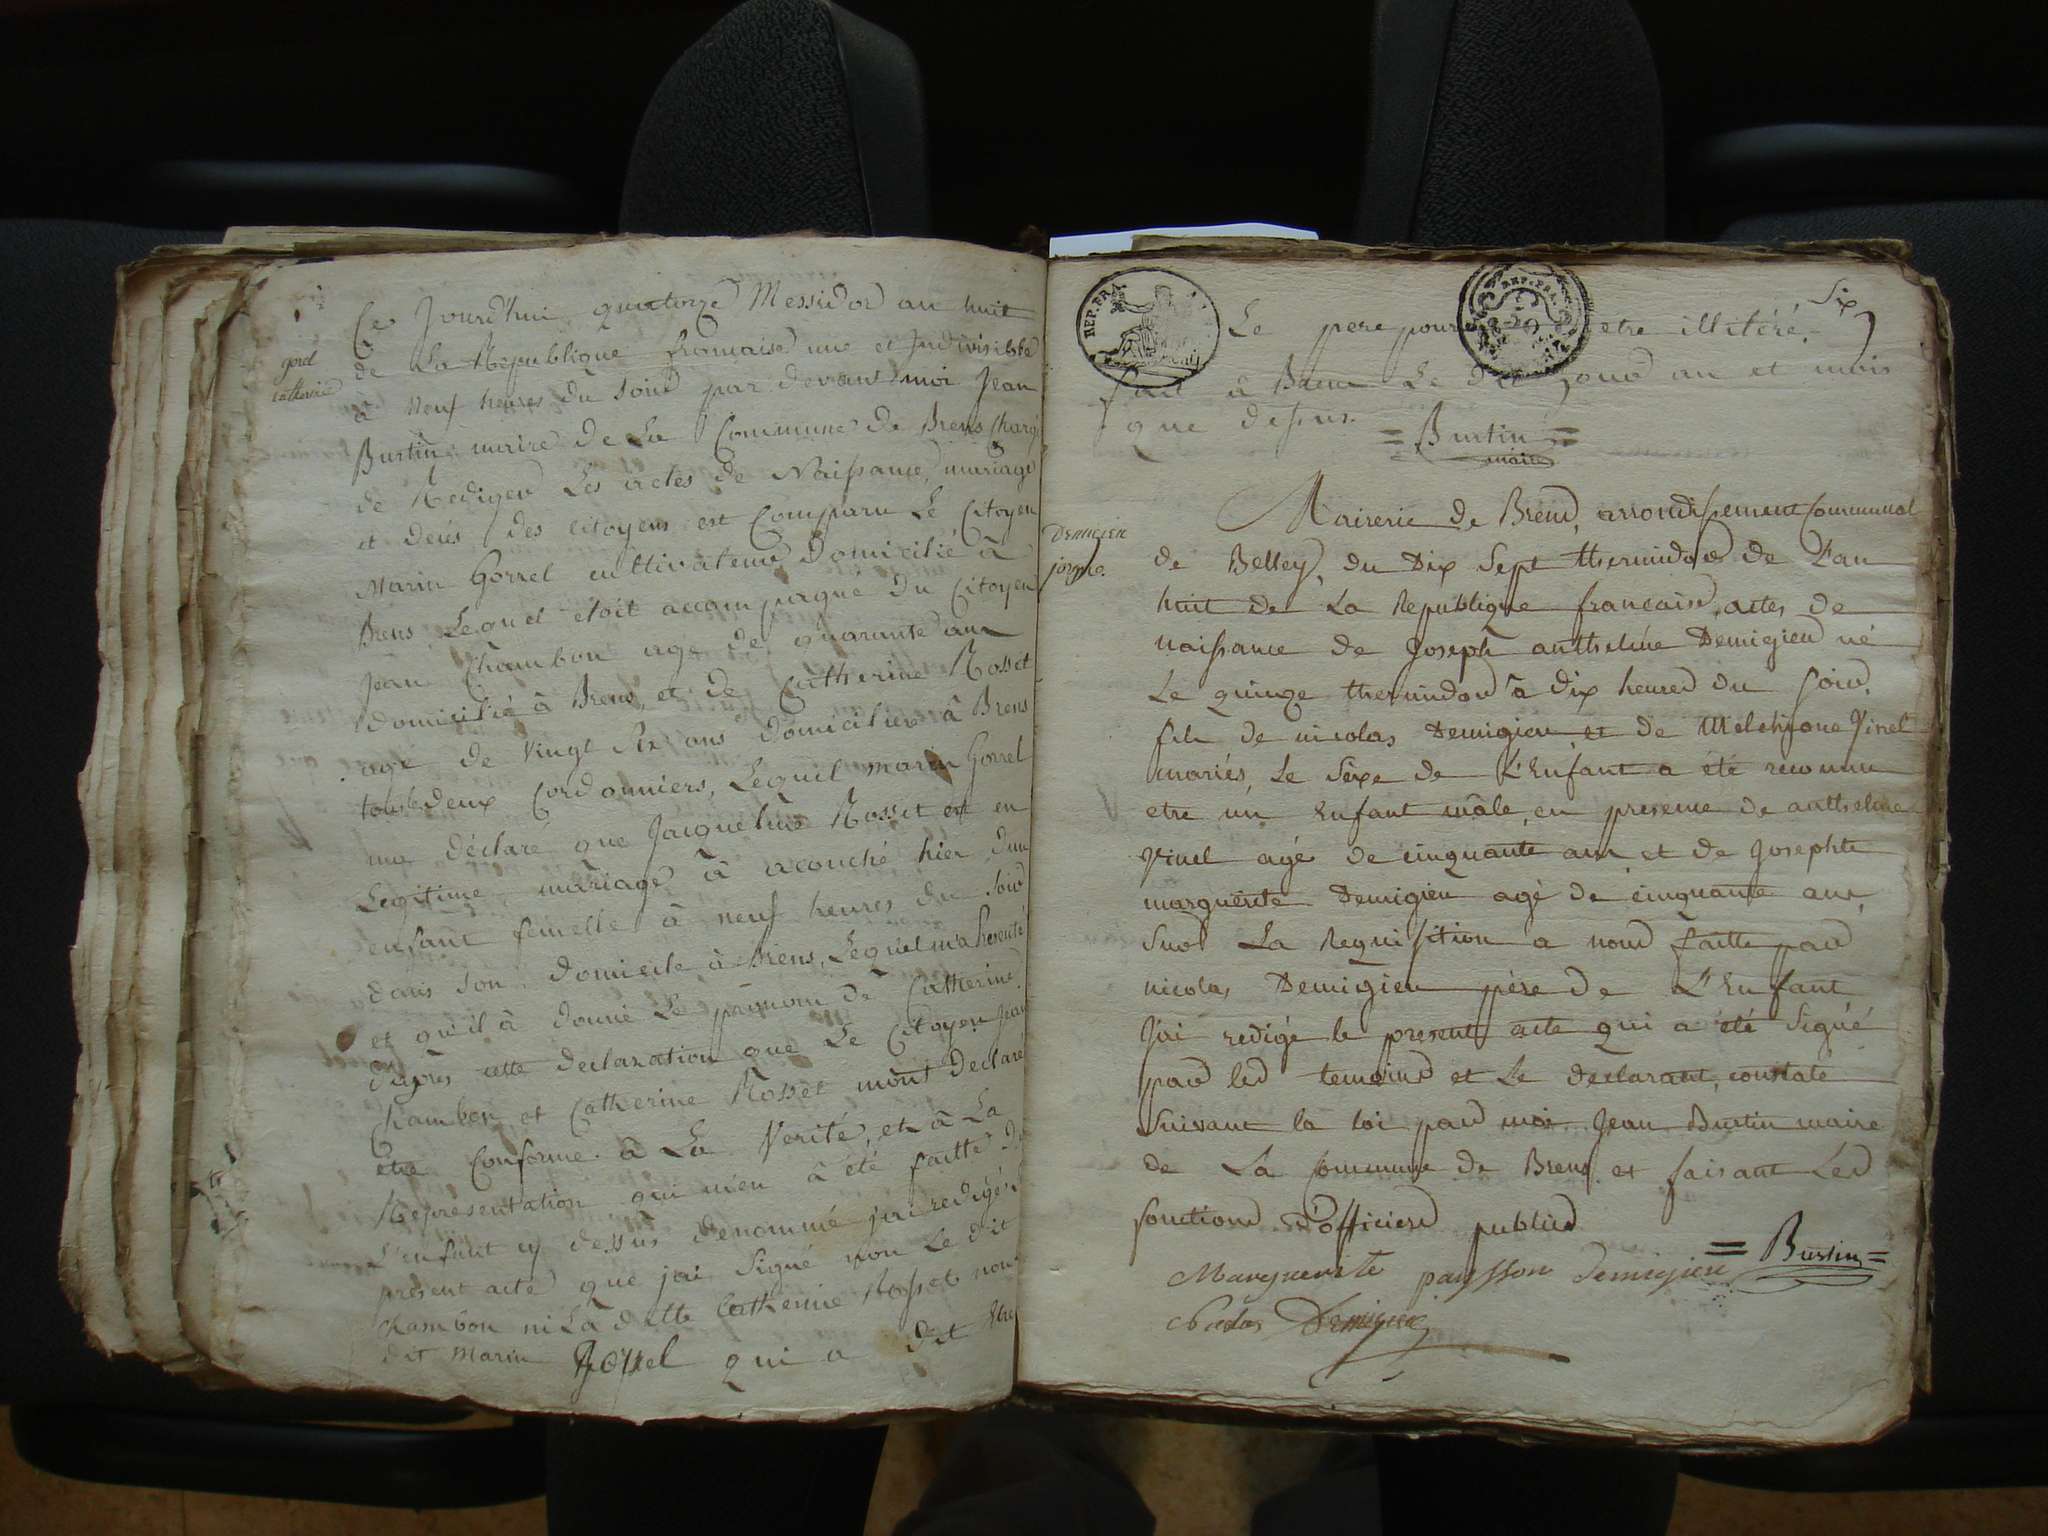 gorel
catherine
Ce Jourd'hui quatorze Messidor an huit
de La Republique francaise une et Indivisible
à neuf heures du Soir par devant moi Jean
Burtin maire de La Commune de Brens Chargé
de Rediger Les actes de Naissance, mariage
et deces des citoyens est Comparu Le Citoyen
Marin Gorrel cultivateur domicilié à
Brens Lequel etoit accompagné du Citoyen
Jean Chambon age de quarante ans
domicilié à Brens, et de Catherine Rosset
agé de vingt Six ans domiciliee à Brens
tous deux Cordonniers, Lequel marin Gorrel
ma déclaré que Jacqueline Rosset en
Legitime mariage à acouché hier d'un
enfant femelle à neuf heures du Soir
dans Son domicile à Brens, Lequel m'a presenté
et qu'il à donné Le prenom de Catherine
d'apres cette declaration que Le Citoyen Jean
Chambon et Catherine Rosset m'ont declaré
etre Conforme à La Verité, et à La
Representation qui m'en à été faitte de
L'enfant cy dessus denommé j'ai redigé le
present acte que j'ai Signé non Le dit
Chambon ni La ditte Catherine Rosset non
dit Marin Gorrel qui a dit etre
Six
REP. FRA.
REP. FRA.
Le pere pour etre illitéré.
fait à Brens Le dit Jour an et mois
que dessus.
= Burtin =
maire
Demigien
joseph
Mairerie de Brens, arrondissement Communal
de Belley, du Dix Sept thermidor de L'an
huit de La Republique francaise, actes de
naissance de Joseph anthelme Demigieu né
Le quinze thermidor à dix heures du soir,
fils de nicolas Demigieu et de Melchione Vinel
mariés, Le Sexe de L'Enfant a été reconnu
etre un Enfant mâle, en presence de anthelme
Vinel agé de cinquante ans, et de Josephte
marguerite Demigieu agé de cinquante ans,
Sur La Requisition a nous faitte par
nicolas Demigieu père de L'Enfant
J'ai redigé le present acte qui a été Signé
par les temoins et Le declarant, constaté
Suivant la loi par moi Jean Burtin maire
de La Commune de Brens et faisant Les
fonctions d'officiers publics
= Burtin =
Marguerite paysson demigieu
Nicolas Demigieu